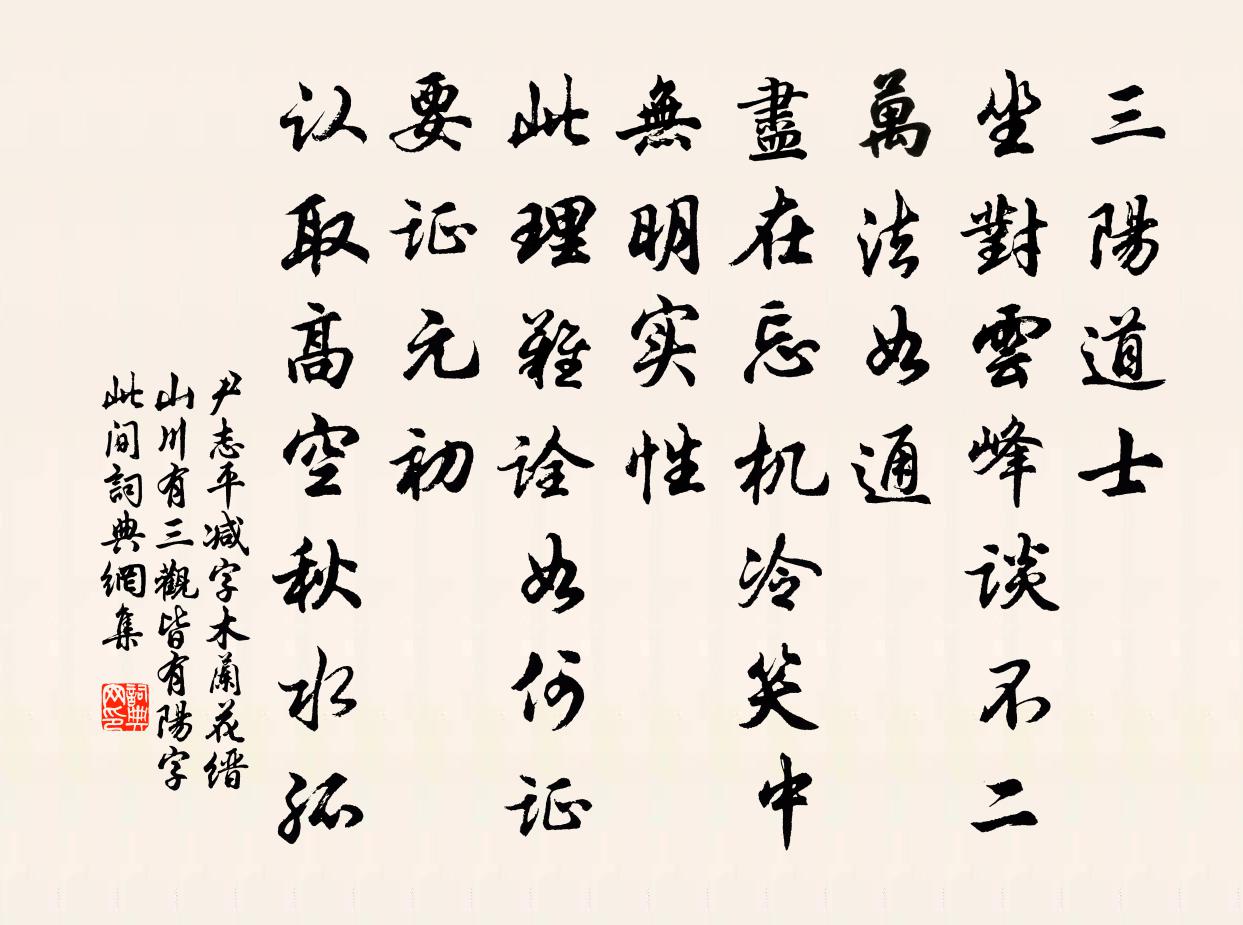 三陽道士
坐對雲峰談不二
萬法如通
盡在忘机冷笑中
無明实性
此理難詮如何证
要证元初
认取高空秋水孤
尹志平減字木蘭花缙
山川有三觀皆有陽字
此间詞典網集
詞典网印